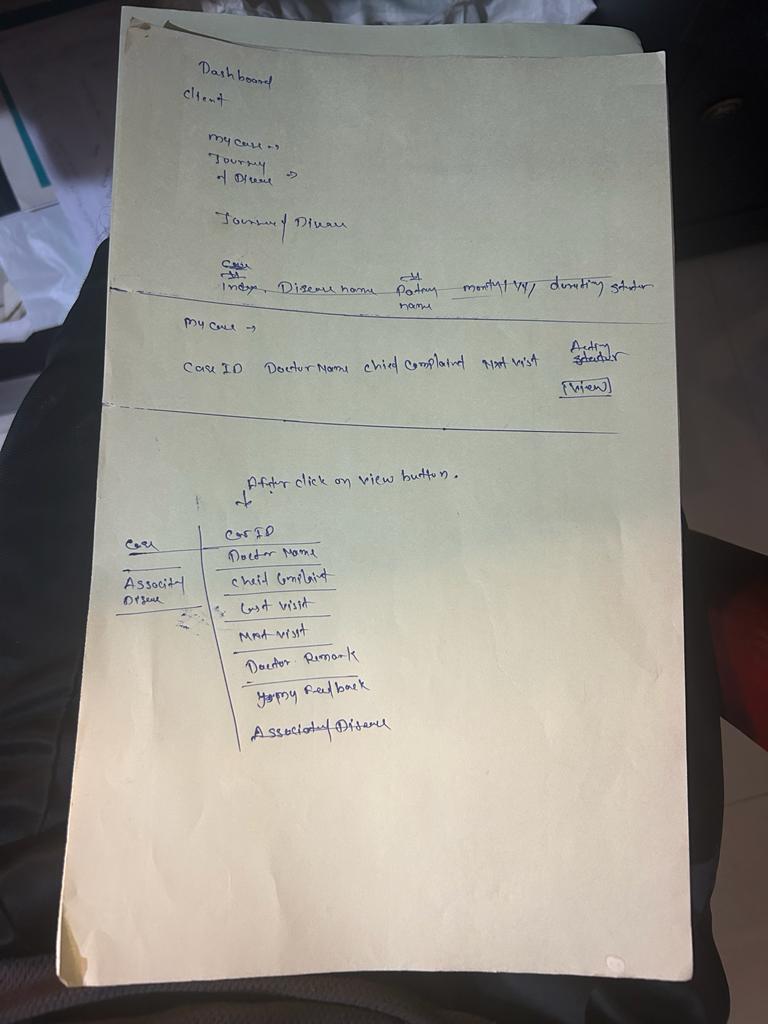 Dashboard
client
my case →
Journey
of Disease →
Journey of Disease
Case
Index, Disease name Patient month/yy/ durating status
name
my case →
Case ID Doctor Name chied Complaind Next visit
Action
[View]
After click on view button.
Case
Associaty
Disease
Case ID
Doctor Name
Cheif Complaint
Last visit
Next visit
Doctor Remark
my Feedback